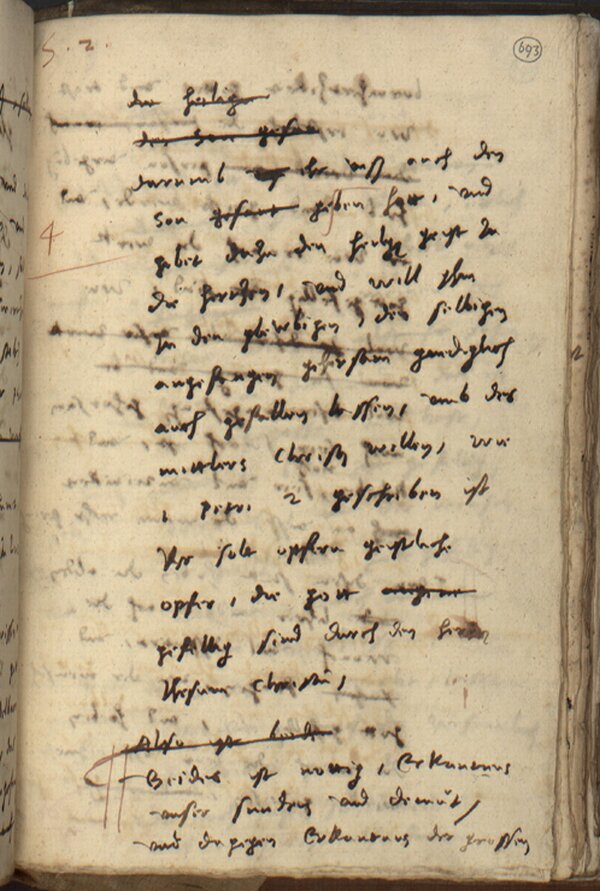 S. 2.
693
die heilige
den Son gesa
darumb ehr auch den
Son gesant geben hatt, und
4
gibet dazu den heilig geist in
die hertzen, und will ihm
in den glewbigen, den selbigen
angefangen gehorsam gnediglich
auch gefallen lassen, umb des
mittlers Christi willen, wie
1 petri 2 geschriben ist
Ihr solt opffern geistliche
opfer, die gott
gefellig sind durch den herrn
Ihesum Christum,
Also
Beides ist nottig, Erkantnus
unser sunden und demut,
und dagegen Erkantnus der grossen